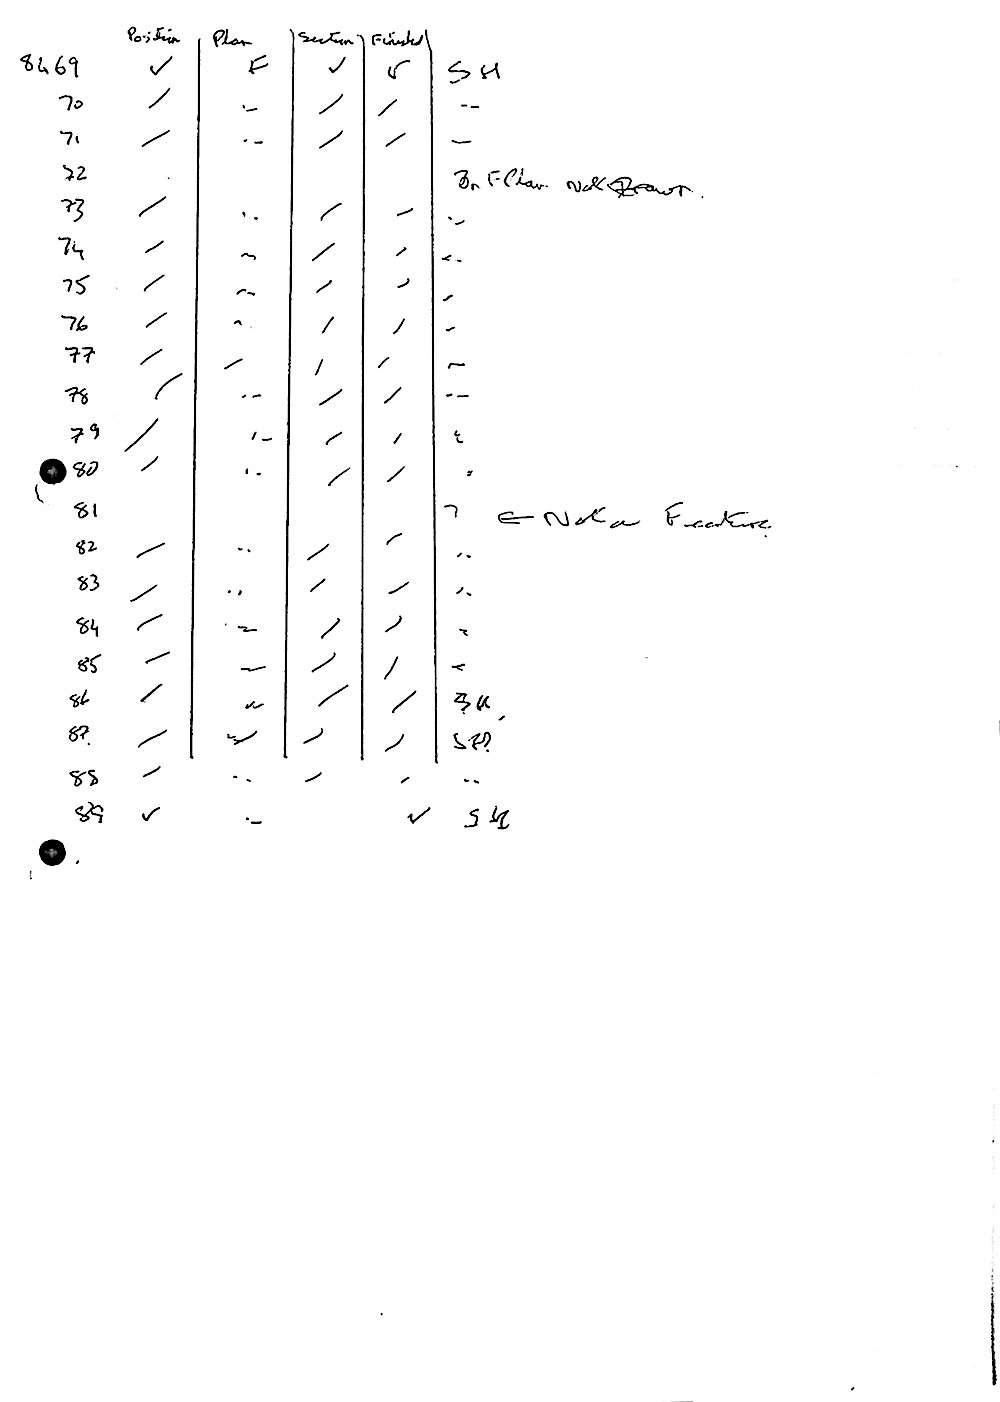 Position Plan Section Finished
8469 ✓ F ✓ ✓ SH
70 / -- / / --
71 / -- / / —
72 On F Plan. Not
73 / -- / / --
74 / ~ / / --
75 / -- / / -
76 / ~ / / -
77 / / / / ~
78 / -- / / --
79 / -- / /
80 / -- / / "
81 ? ← Not a Feature.
82 / -- / / --
83 / -- / / --
84 / ~ / / ~
85 / — / / -
86 / ~ / / SH
87 / / / SP?
88 / -- / / --
89 ✓ -- ✓ SH